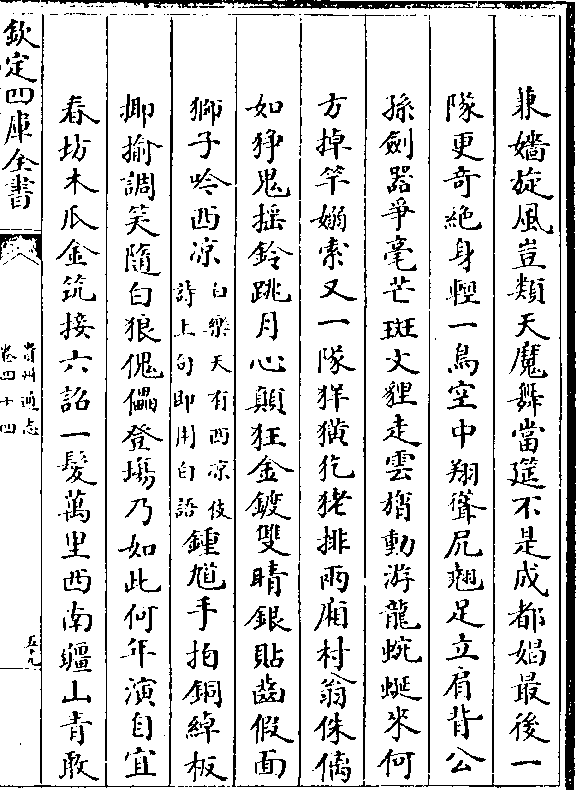 兼嬙旋風豈類天魔舞當筵不是成都娼最後一
隊更奇絶身輕一鳥空中翔聳尻翹足立肩背公
孫劍器爭毫芒斑文貍走雲旓動游龍蜿蜒来何
方掉竿嫋索又一隊牂獚犵狫排兩廂村翁侏
如狰鬼揺鈴跳月心顛狂金鍍雙睛銀貼齒假面
獅子吟西凉白樂天有西凉伎詩上句即用白語鍾馗手拍銅綽板
揶揄調笑隨白狼傀儡登塲乃如此何年演自宜
春坊木瓜金筑接六詔一髮萬里西南疆山青敢
欽定四庫全書
貴州通志
卷四十四
五十九